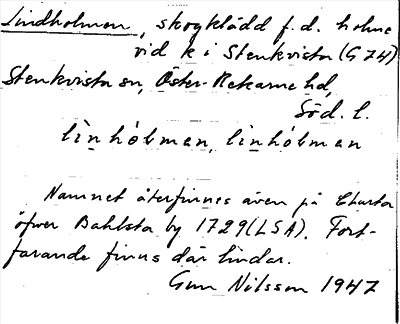 Lindholmen, skogklädd f.d. holme
vid k i Stenkvista (G 74)
Stenkvista sn, Öster-Rekarne hd,
Söd. l.
lìnhòlmen, lìnhólmen
Namnet återfinnes även på Charta
öfver Bahlsta by 1729 (LSA). Fort-
farande finns där lindar.
Gun Nilsson 1947